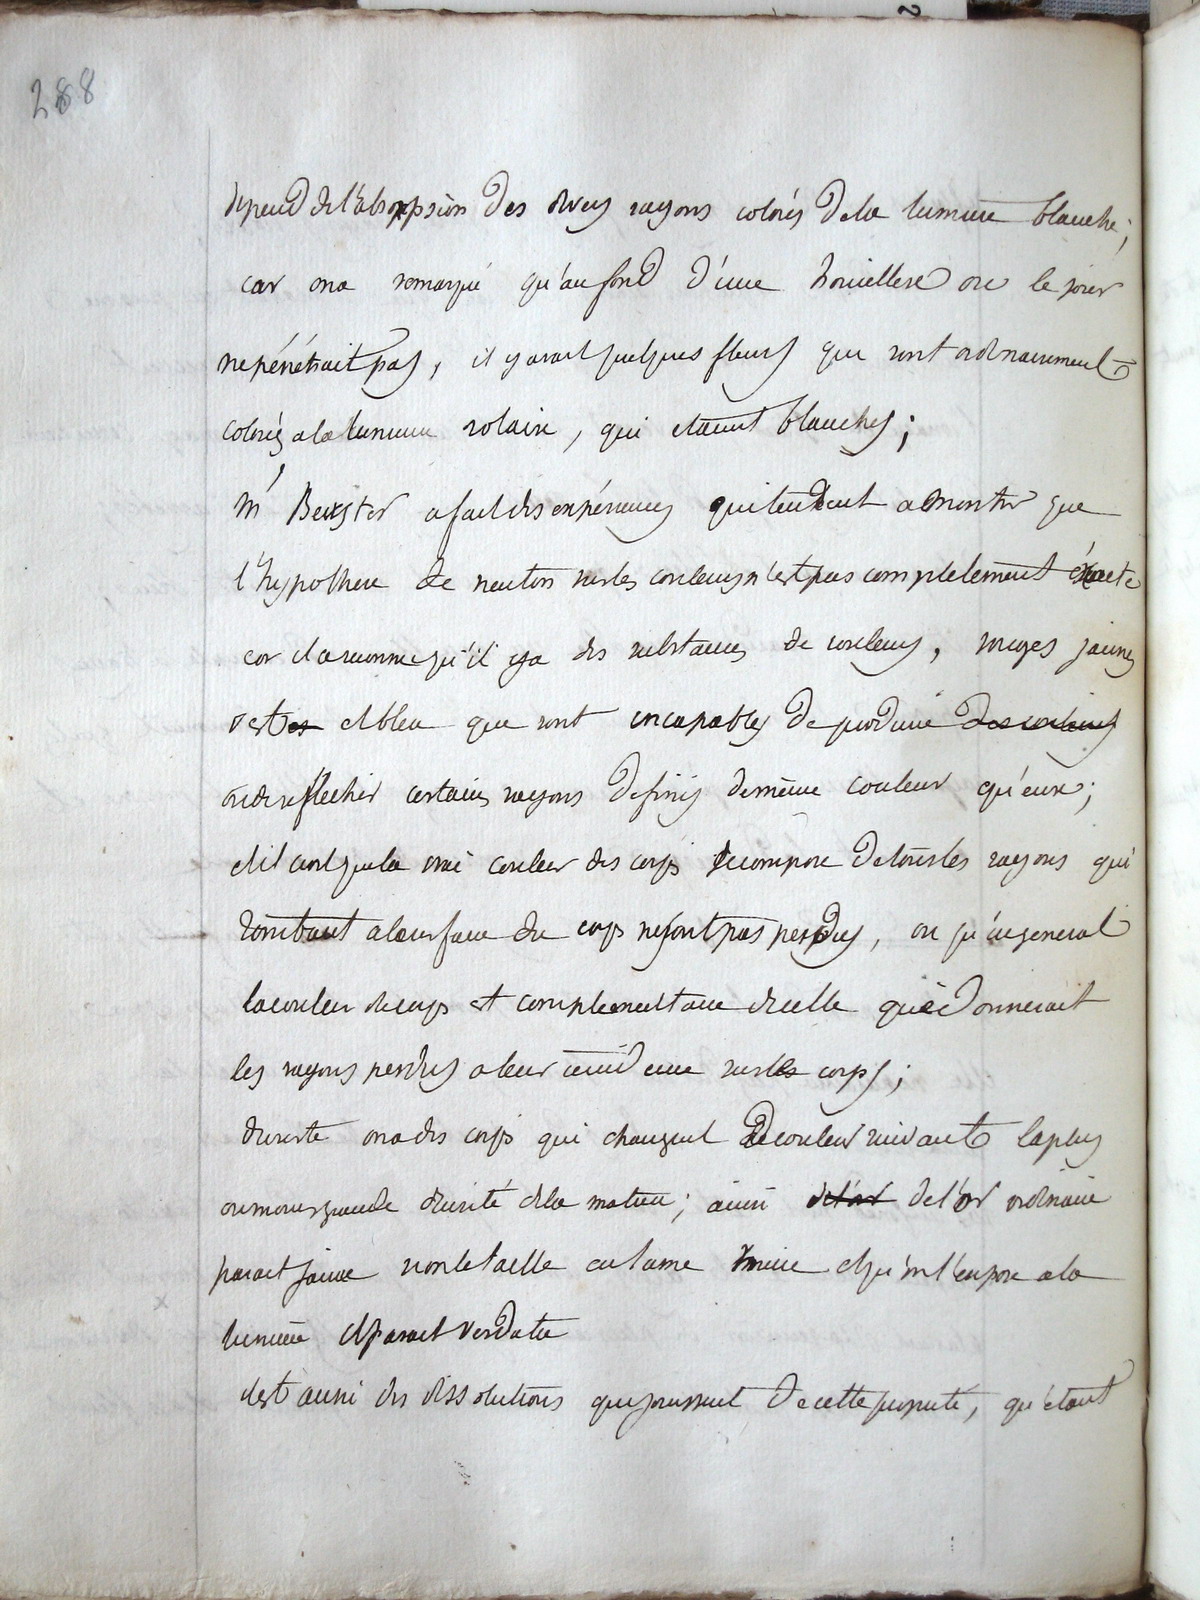 288
depend de l'absorpsion des divers rayons colorés de la lumiere blanche;
car on a remarqué qu'au fond d'une houillere ou le jour
ne pénétrait pas, il y avait quelques fleurs qui sont ordinairement
colorés a la lumiere solaire, qui etaient blanches;
Mr Bewster a fait des expériences qui tendent a montrer que
l'hypothese de neuton sur les couleurs n'est pas completement éxacte
car il a reconnu qu'il y a des substances de couleurs, rouges jaunes
vertes et bleu qui sont incapables de produire des couleurs
ou de reflechir certains rayons definis de même couleur qu'eux;
et il croit que la vrai couleur des corps se compose de tous les rayons qui
tombant a la surface du corps ne sont pas perdus, ou qu'en general
la couleur du corps est complementaire de celle que donnerait
les rayons perdus a leur incidence sur les corps;
du reste on a des corps qui changent de couleur suivant la plus
ou moins grande densité de la matiere; ainsi de l'or de l'or ordinaire
parait jaune si on le taille en lame mince et qu'on l'expose a la
lumière il parait verdatre
il est aussi des dissolutions qui jouissent de cette propriété, qu'étant